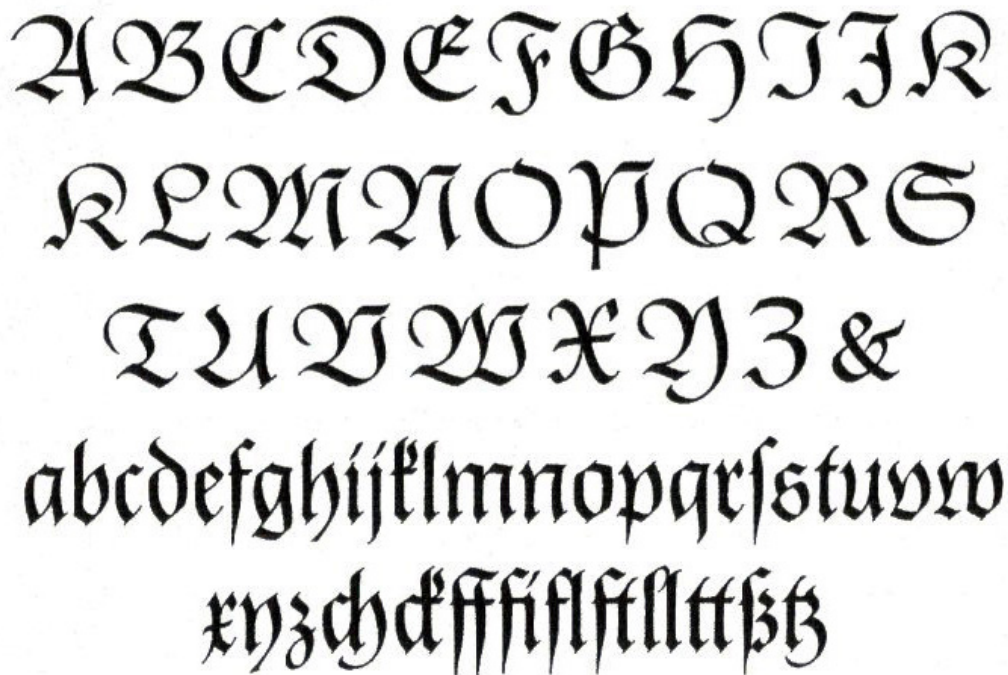 ABCDEFGHIJK
KLMNOPQRS
TUVWXYZ&
abcdefghijklmnopqrſstuvw
xyzchckfffiflſtllttßtz